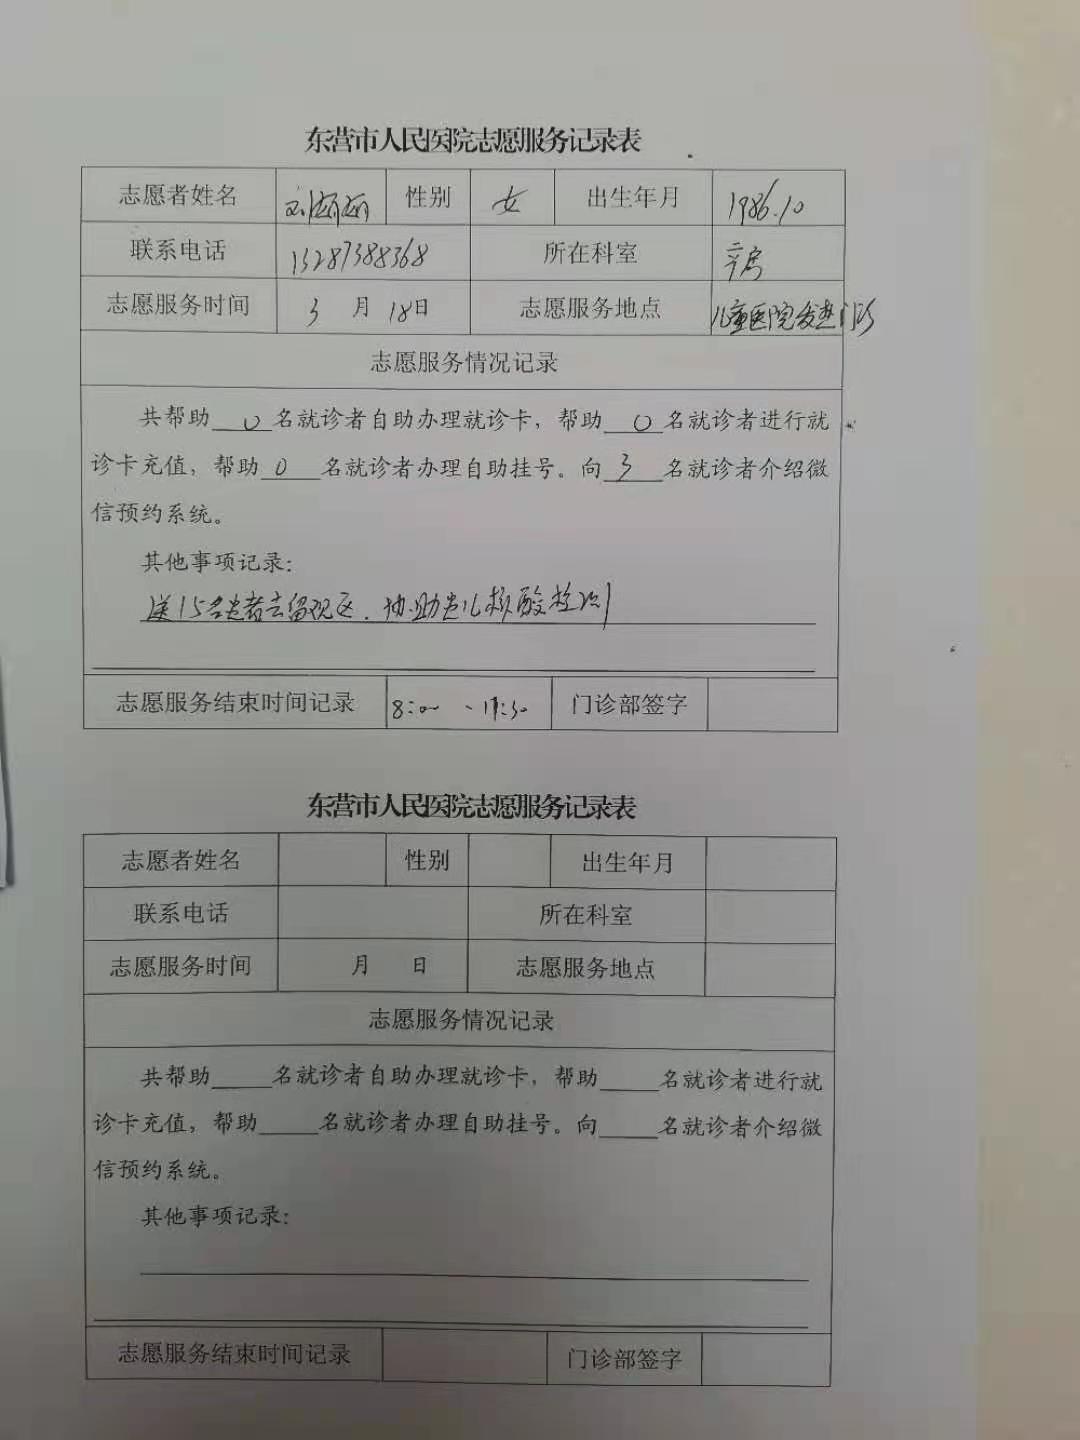 东营市人民医院志愿服务记录表
志愿者姓名 刘丽丽 性别 女 出生年月 1986.10
联系电话 13287388368 所在科室 产房
志愿服务时间 3 月 18日 志愿服务地点 儿童医院发热门诊
志愿服务情况记录
共帮助 0 名就诊者自助办理就诊卡，帮助 0 名就诊者进行就
诊卡充值，帮助 0 名就诊者办理自助挂号。向 3 名就诊者介绍微
信预约系统。
其他事项记录：
送15名患者去留观区.协助患儿核酸检测
志愿服务结束时间记录 8:00 、11:30 门诊部签字
东营市人民医院志愿服务记录表
志愿者姓名 性别 出生年月
联系电话 所在科室
志愿服务时间 月 日 志愿服务地点
志愿服务情况记录
共帮助_____名就诊者自助办理就诊卡，帮助_____名就诊者进行就
诊卡充值，帮助_____名就诊者办理自助挂号。向_____名就诊者介绍微
信预约系统。
其他事项记录：
志愿服务结束时间记录 门诊部签字